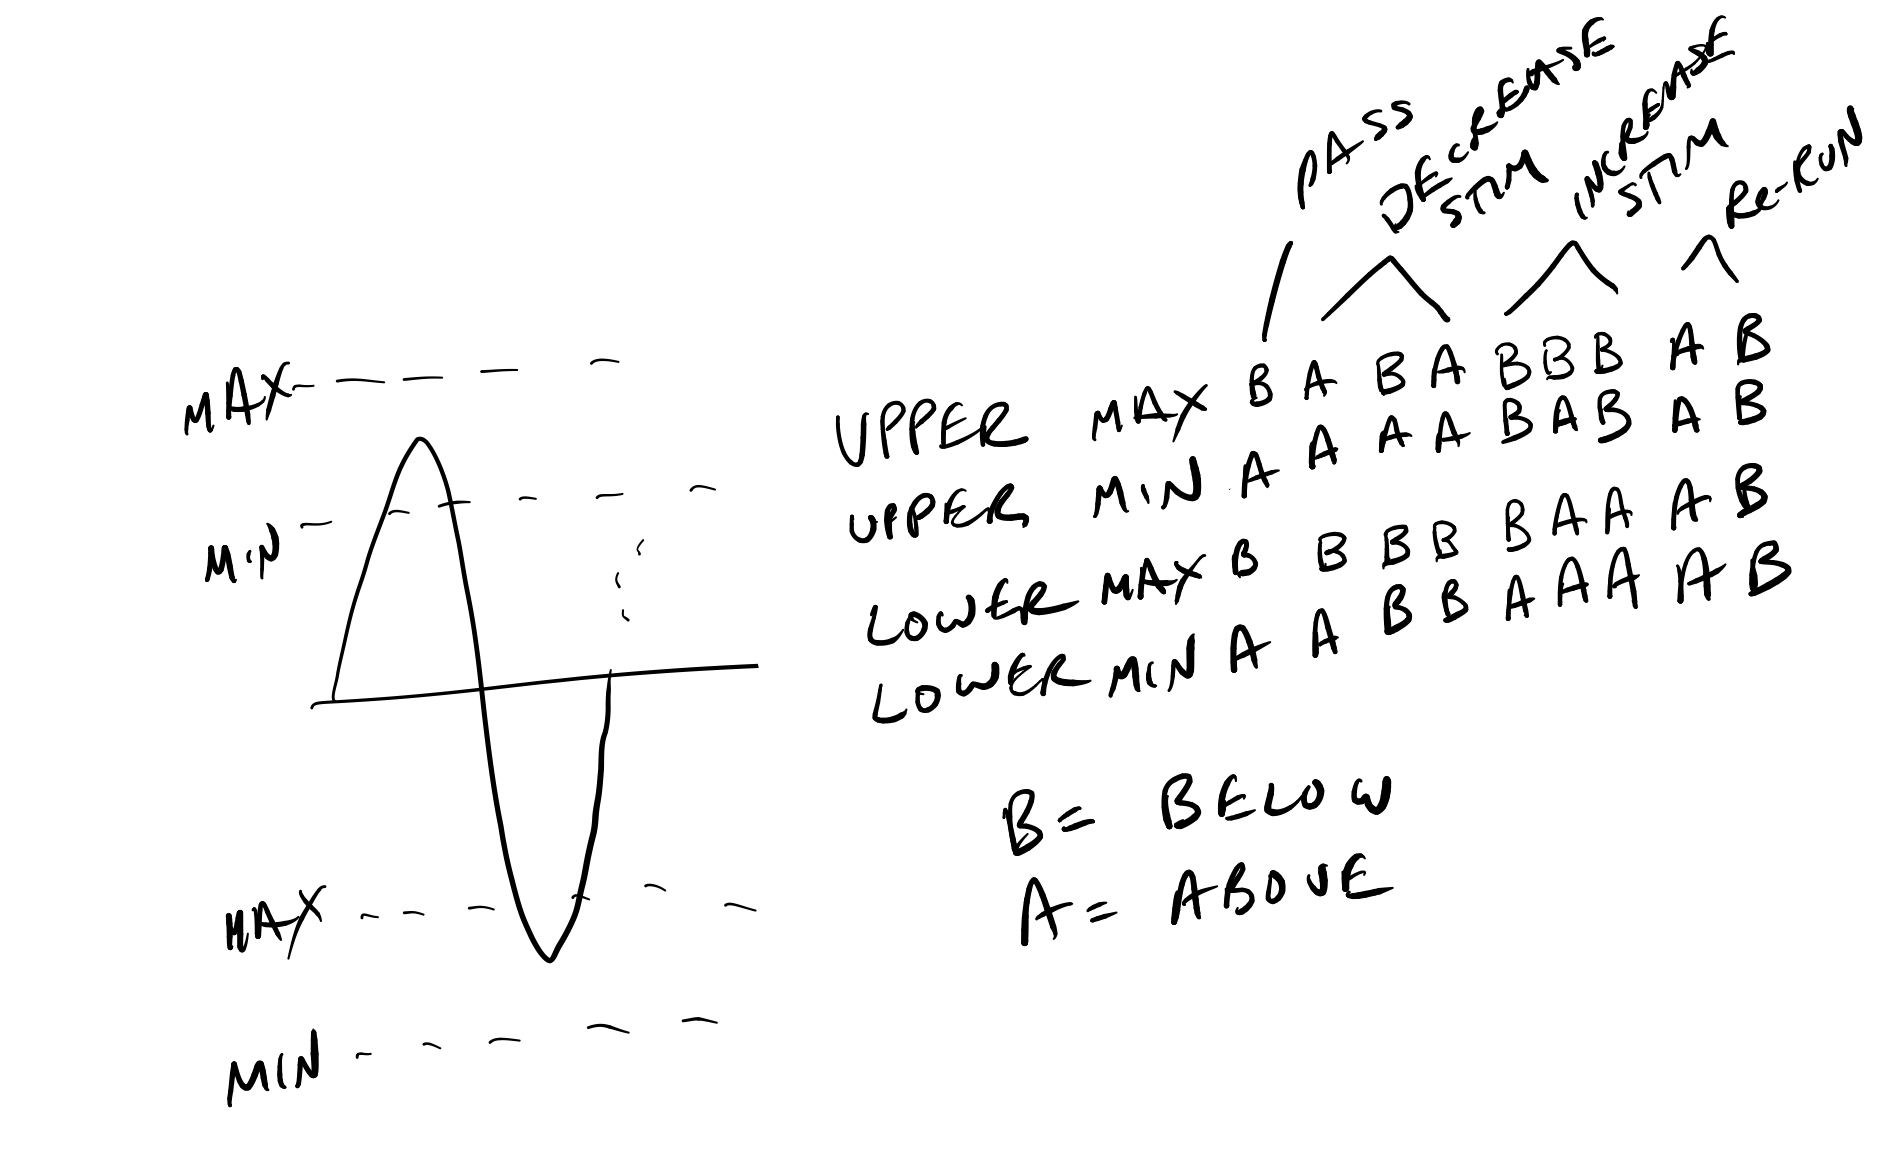 PASS
DECREASE
STIM
INCREASE
STIM
Re-RUN
MAX
MIN
UPPER MAX B A B A B B B A B
UPPER MIN A A A A B A B A B
LOWER MAX B B B B B A A A B
LOWER MIN A A B B A A A A B
B = BELOW
A = ABOVE
MAX
MIN